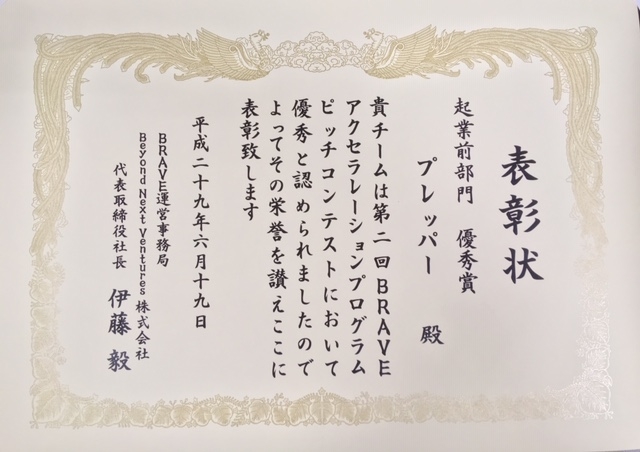 表彰状
起業前部門 優秀賞
プレッパー 殿
貴チームは第二回BRAVE
アクセラレーションプログラム
ピッチコンテストにおいて
優秀と認められましたので
よってその栄誉を讃えここに
表彰致します
平成二十九年六月十九日
BRAVE運営事務局
Beyond Next Ventures 株式会社
代表取締役社長 伊藤 毅